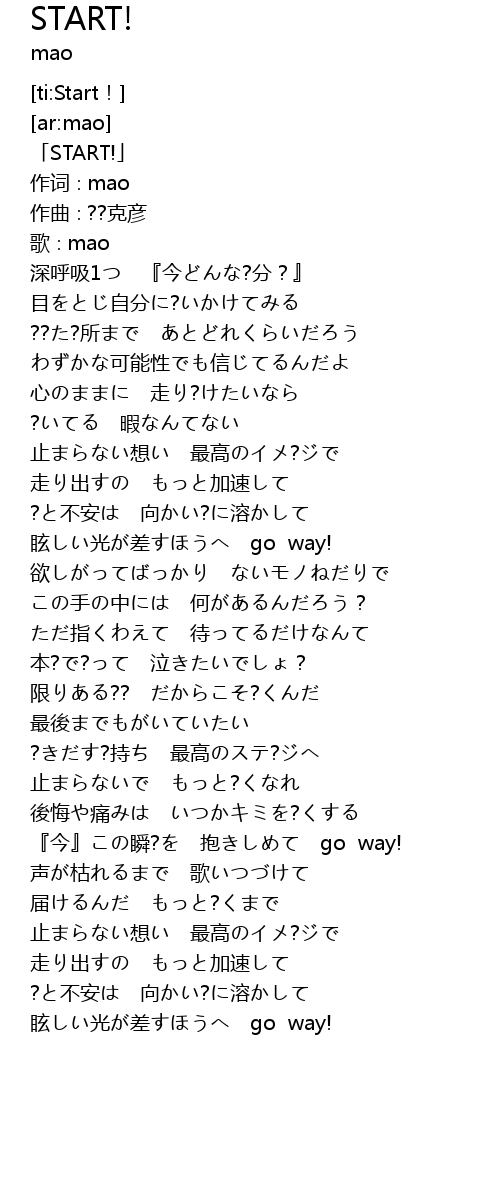 START!
mao
[ti:Start！]
[ar:mao]
「START!」
作词 : mao
作曲 : ??克彦
歌 : mao
深呼吸1つ　『今どんな?分？』
目をとじ自分に?いかけてみる
??た?所まで　あとどれくらいだろう
わずかな可能性でも信じてるんだよ
心のままに　走り?けたいなら
?いてる　暇なんてない
止まらない想い　最高のイメ?ジで
走り出すの　もっと加速して
?と不安は　向かい?に溶かして
眩しい光が差すほうへ　go way!
欲しがってばっかり　ないモノねだりで
この手の中には　何があるんだろう？
ただ指くわえて　待ってるだけなんて
本?で?って　泣きたいでしょ？
限りある??　だからこそ?くんだ
最後までもがいていたい
?きだす?持ち　最高のステ?ジへ
止まらないで　もっと?くなれ
後悔や痛みは　いつかキミを?くする
『今』この瞬?を　抱きしめて　go way!
声が枯れるまで　歌いつづけて
届けるんだ　もっと?くまで
止まらない想い　最高のイメ?ジで
走り出すの　もっと加速して
?と不安は　向かい?に溶かして
眩しい光が差すほうへ　go way!